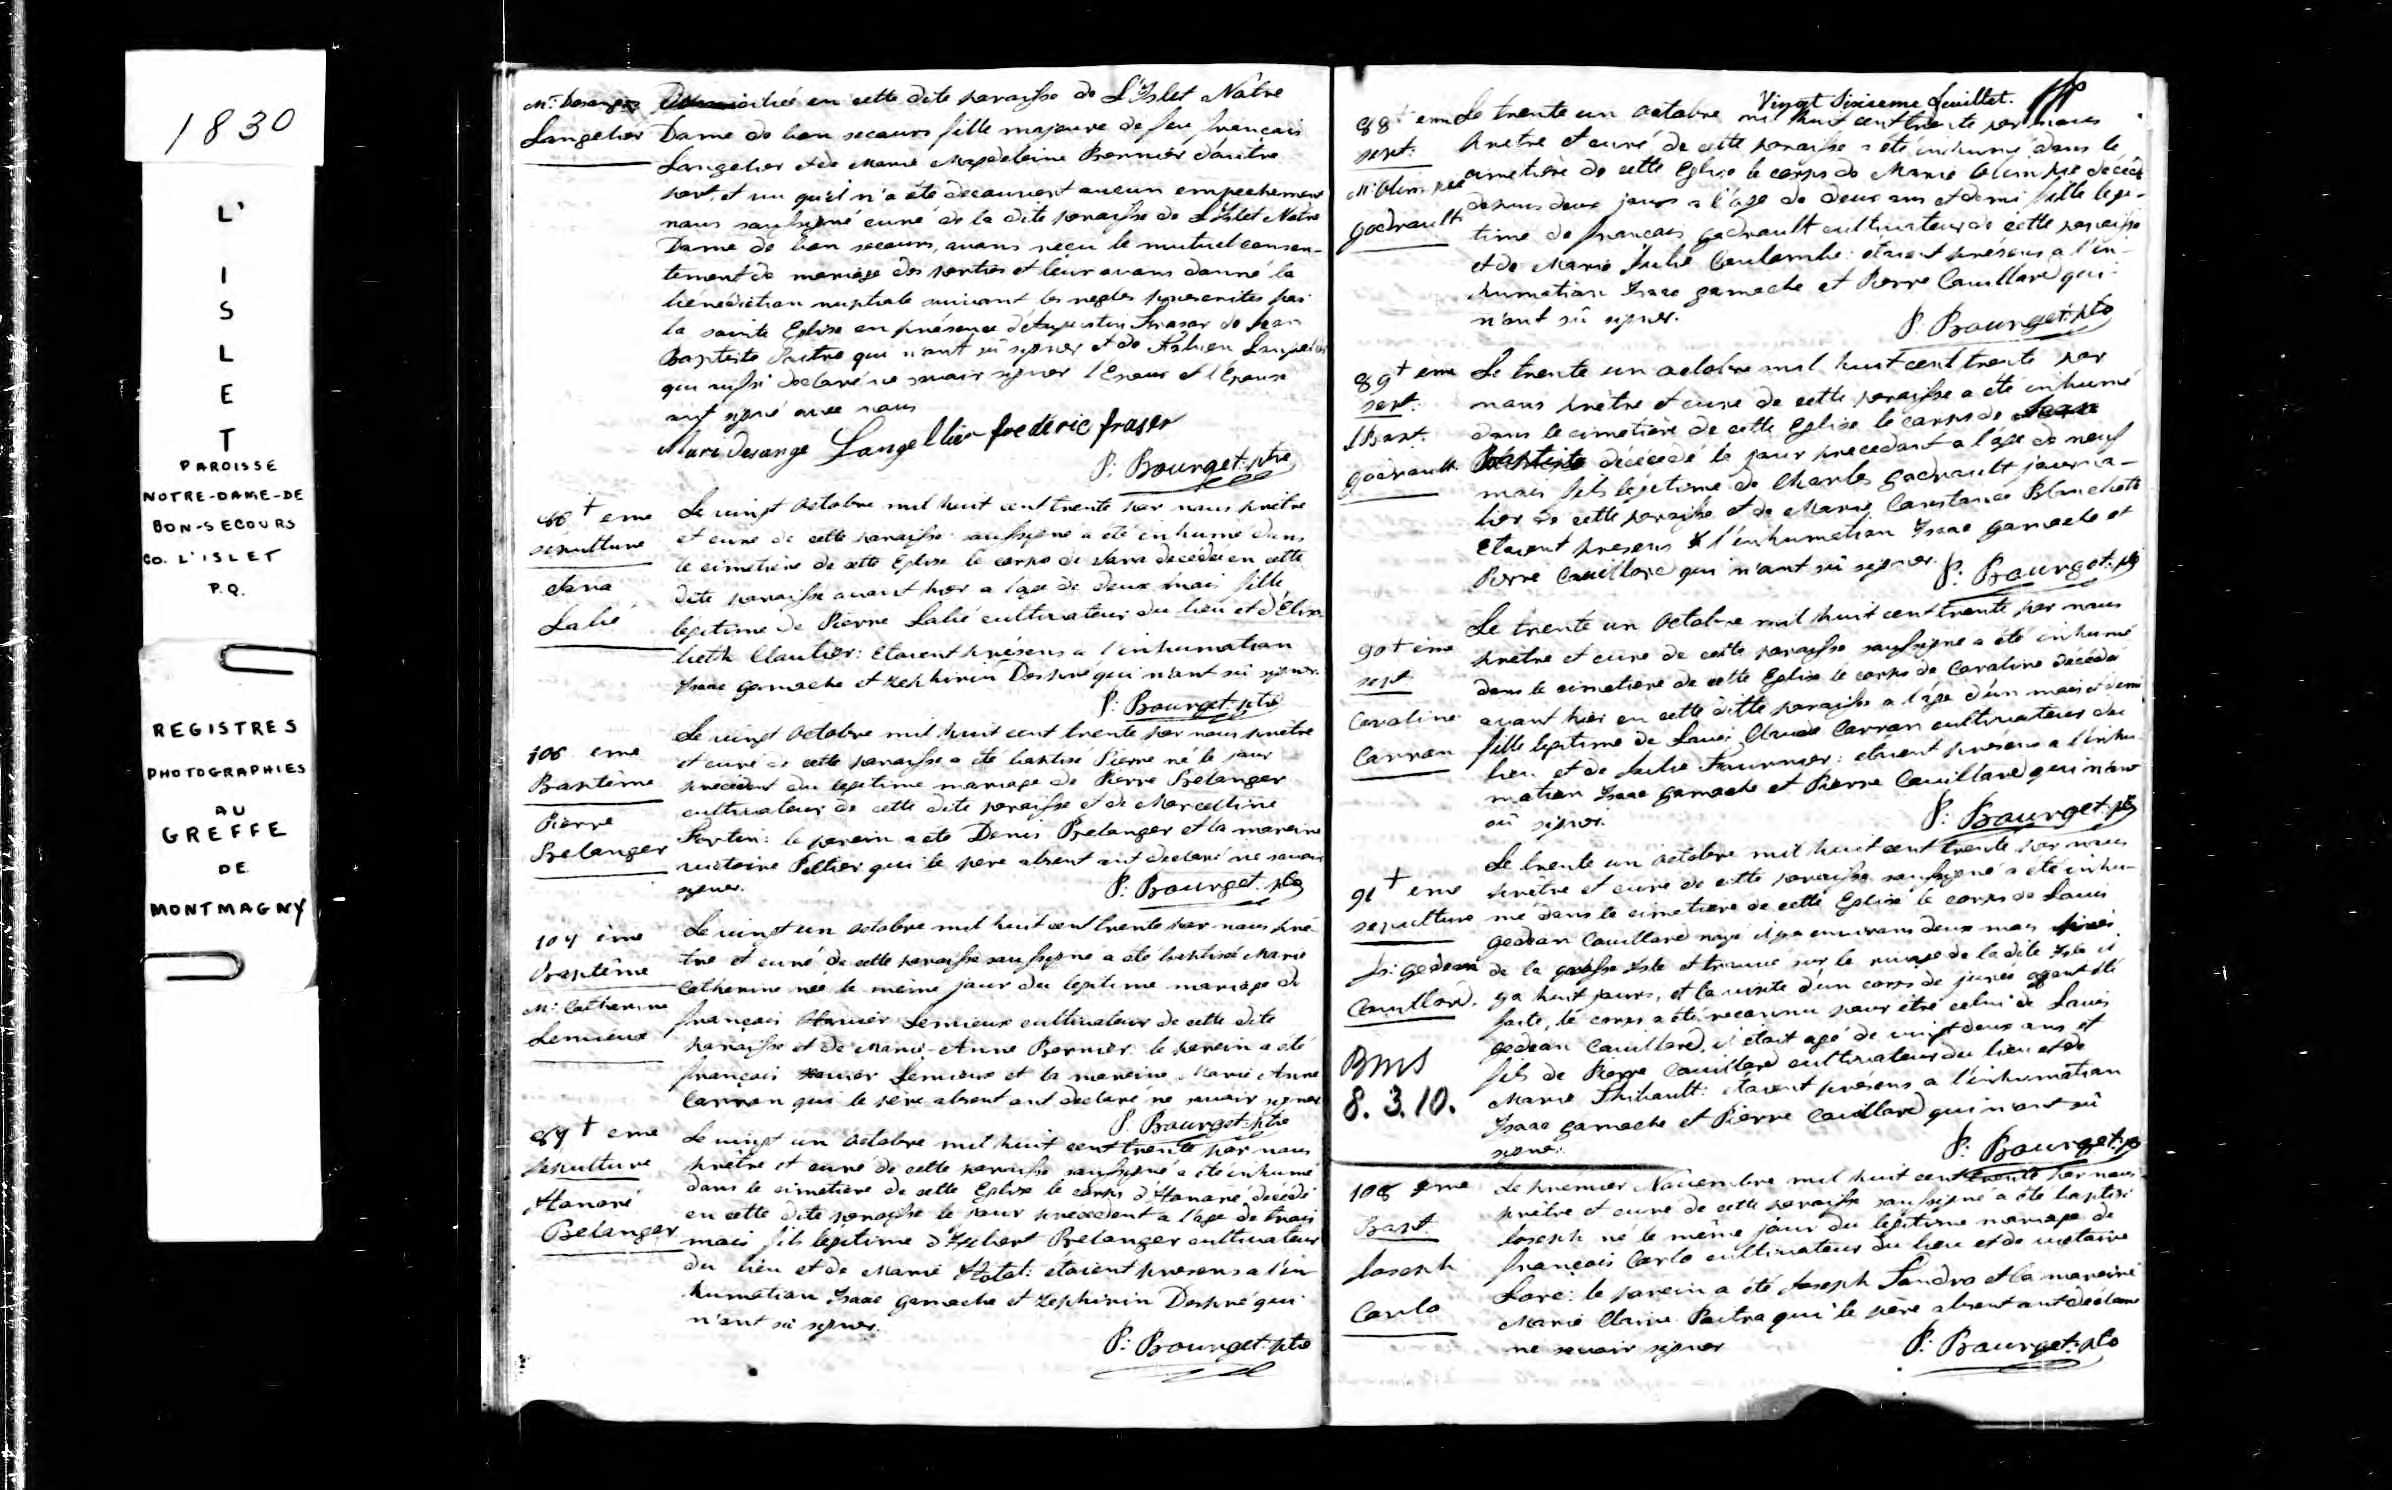 1830
L'
I
S
L
E
T
PAROISSE
NOTRE-DAME-DE
BON-SECOURS
CO. L'ISLET
P.Q.
REGISTRES
PHOTOGRAPHIES
AU
GREFFE
DE
MONTMAGNY
Mie Desanges
Langelier
en cette dite paroisse de L'Islet Notre
Dame de bon secours fille majeure de feu francois
Langelier et de Marie Magdeleine Bernier d'autre
part, et vu qu'il n'a été decouvert aucun empechement
nous soussigné curé de la dite paroisse de L'Islet Notre
Dame de bon secours, avons reçu le mutuel consen-
tement de mariage des parties et leur avons donné la
bénédiction nuptiale suivant les regles prescrites par
la sainte Eglise en présence d'Augustin Frasar de Jean
Baptiste qui n'ont sû signer et de Fabien Langelier
qui aussi declaré ne savoir signer l'Epoux et l'Epouse
ont signé avec nous
Marie desange Langellier frederic fraser
P: Bourget ptre
86+ eme
sépulture
Lalié
Le vingt Octobre mil huit cent trente par nous prêtre
et curé de cette paroisse soussigné a été inhumé dans
le cimetière de cette Eglise le corps de décédée en cette
dite paroisse avant hier a l'age de deux mois fille
legitime de Pierre Lalié cultivateur du lieu et d'Eliza
beth Cloutier: étaient présens a l'inhumation
Isaac gamache et Zephirin Després qui n'ont sû signer.
P: Bourget ptre
106 eme
Baptême
Pierre
Belanger
Le vingt Octobre mil huit cent trente par nous prêtre
et curé de cette paroisse a été baptisé Pierre né le jour
précédent du legitime mariage de Pierre Belanger
cultivateur de cette dite paroisse et de Marcelline
Fortin: le parein a été Denis Belanger et la mareine
victoire Peltier qui le pere absent ont declaré ne savoir
signer.
P: Bourget ptre
107 ème
Baptême
Mie Catherine
Lemieux
Le vingt un octobre mil huit cent trente par nous prê
tre et curé de cette paroisse soussigné a été baptisé Marie
Catherine née le même jour du legitime mariage de
françois Lemieux cultivateur de cette dite
paroisse et de Marie-Anne Bernier le parein a été
françois Lemieux et la mareine Marie Anne
Carron qui le père absent ont declaré ne savoir signer
P: Bourget ptre
87+ eme
sepulture
Honoré
Belanger
Le vingt un Octobre mil huit cent trente par nous
prêtre et curé de cette paroisse soussigné a été inhumé
dans le cimetière de cette Eglise le corps d'Honoré décédé
en cette dite paroisse le jour précédent a l'age de trois
mois fils légitime Belanger cultivateur
du lieu et de Marie étaient présens a l'in
humation Isaac gamache et Zephirin Després qui
n'ont sû signer.
P: Bourget ptre
Vingt Sixieme feuillet.
88+ eme
sept.
Mie Olimpie
godrault
Le trente un octobre mil huit cent trente par nous
prêtre et curé de cette paroisse a été inhumé dans le
cimetière de cette Eglise le corps de Marie Olimpie décédé
depuis deux jours a l'age de deux ans et demi fille legi-
time de francois godrault cultivateur de cette paroisse
et de Marie Julie Coulombe: étaient présens a l'in-
humation Isaac gamache et Pierre Couillard qui
n'ont sû signer.
P: Bourget ptre
89+ eme
sept.
J Bapt.
godrault
Le trente un octobre mil huit cent trente par
nous prêtre et curé de cette paroisse a été inhumé
dans le cimetière de cette Eglise le corps de Jean
Baptiste décédé le jour precedent a l'age de neuf
mois fils légitime de Charles godrault journa-
lier de cette paroisse et de Marie Constance Blanchette
Etaient presens a l'inhumation Isaac gamache et
Pierre Couillard qui n'ont sû signer. P: Bourget ptre
90+ eme
sept.
Caroline
Carron
Le trente un Octobre mil huit cent trente par nous
prêtre et curé de cette paroisse soussigné a été inhumé
dans le cimetière de cette Eglise le corps de Caroline décédée
avant hier en cette ditte paroisse a l'age d'un mois et demi
fille legitime de Louis Claude Carron cultivateur du
lieu et de Julie Fournier: étaient présens a l'inhu-
mation Isaac gamache et Pierre Couillard qui n'ont
sû signer.
P: Bourget ptre
91+ eme
sepulture
Ls: gedeon
Couillard.
Le trente un octobre mil huit cent trente par nous
prêtre et curé de cette paroisse soussigné a été inhu-
mé dans le cimetiere de cette Eglise le corps de Louis
gedeon Couillard noyé il y a environs deux mois
de la grosse Isle et trouvé sur le rivage de la dite Isle il
ya huit jours, et la visite d'un corps de jurés ayant été
faite, le corps a été reconnu pour être celui de Louis
gedeon Couillard, il etait agé de vingt deux ans et
fils de Pierre Couillard cultivateur du lieu et de
Marie Thibault: étaient présens a l'inhumation
Isaac gamache et Pierre Couillard qui n'ont sû
signer.
P: Bourget ptre
BMS
8.3.10.
108 eme
Bapt.
Joseph
Carlo
Le premier Novembre mil huit cent trente par nous
prêtre et curé de cette paroisse soussigné a été baptisé
Joseph né le même jour du légitime mariage de
françois Carlo cultivateur du lieu et de victoire
le parein a été Joseph et la mareine
Marie Claire qui le père absent ont déclaré
ne savoir signer
P: Bourget ptre